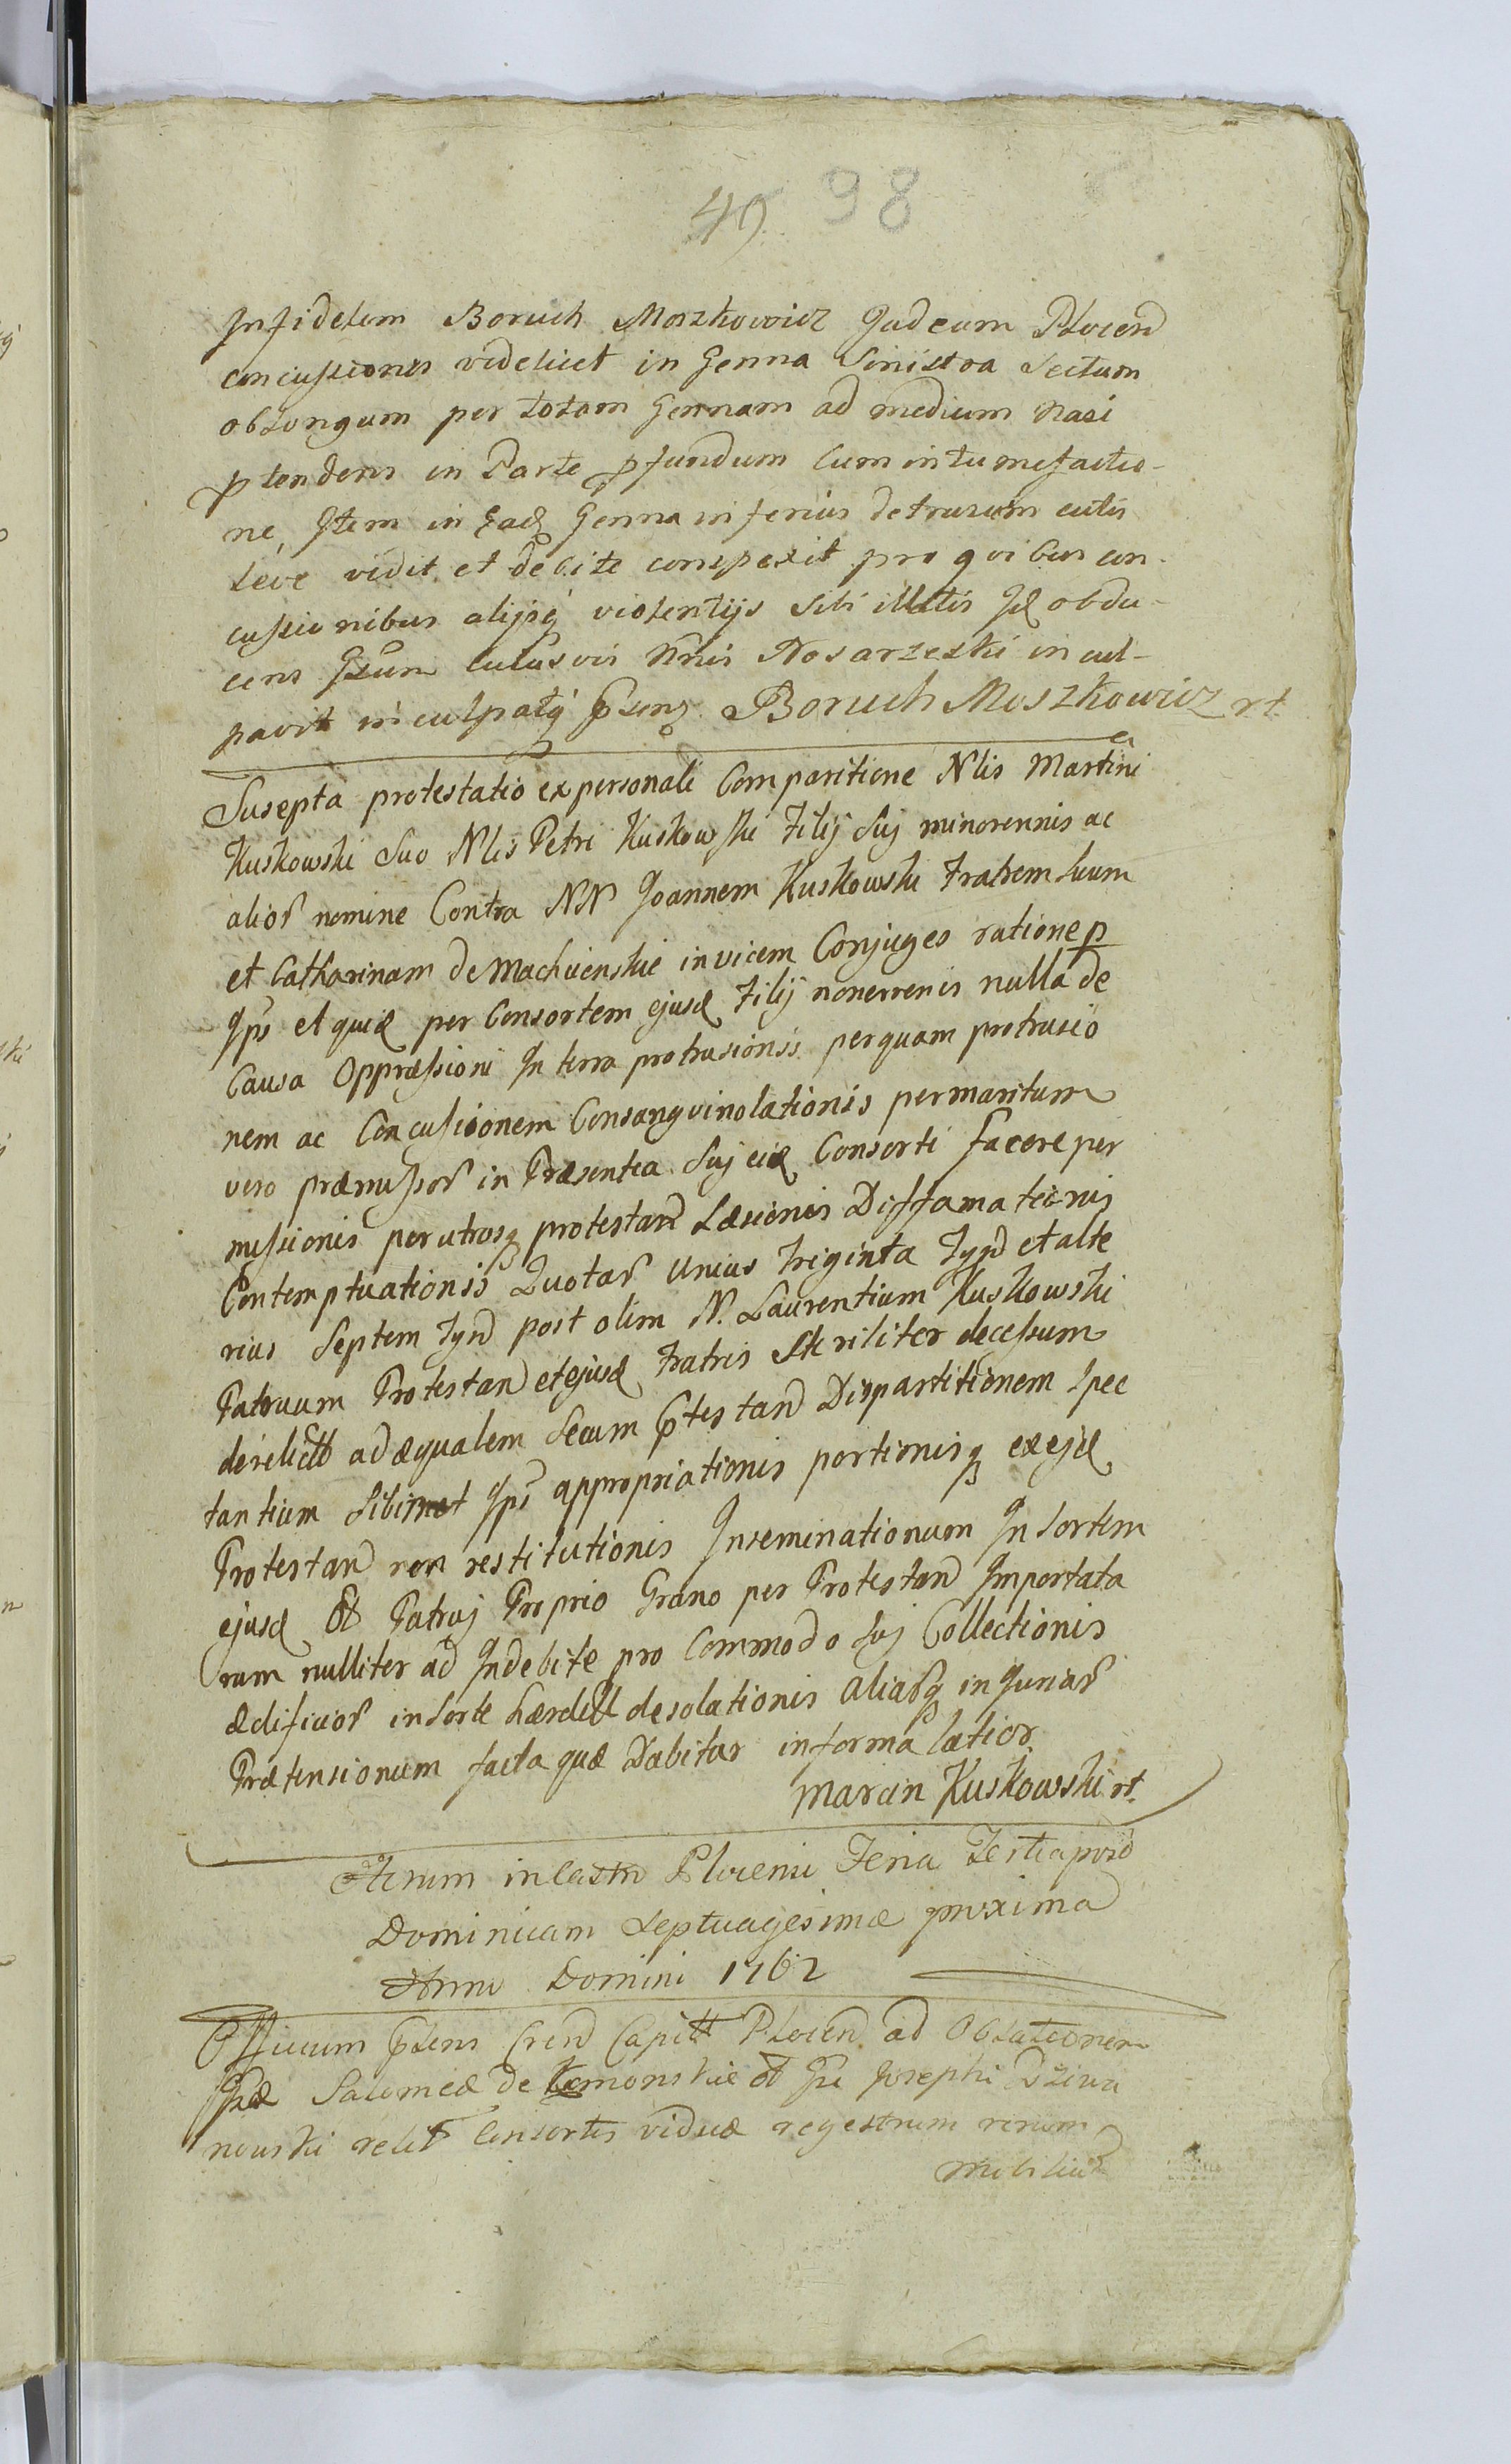 49. 98
Infidelem Boruch Moszkowicz Judeum Plocen
concussiones videlicet in Genna Sinistra Sectum
oblongum per totam Gennam ad medium Nasi
ptendens in Parte pfundum Cum intumefactio-
ne, Item in Ead Genna inferius detrusum cutis
leve vidit et debite conspexit pro quibus con-
cussionibus alijsq violentijs Sibi illatis Id obdu-
cens Gsum Nnis Nosarzeski incul-
pavit inculpatq psens. Boruch Moszkowicz rt.
Suscepta protestatio ex personali Comparitione Nlis Martini
Kuskowski Suo Nlis Petri Kuskowski Filij Suj minorennis ac
alior nomine Contra NN Joannem Kuskowski Fratrem Suum
et Catharinam de Machcienskie invicem Conjuges ratione p
Ips et quid per Consortem ejusd Filij nonerrenis nulla de
Causa Oppressioni In terra protrusionis perquam protrusio
nem ac Concussionem Consanguinolationis per maritum
vero præmissor in Præsentia Suj eid Consorti facere per
missionis per utrosq protestan Læsionis Diffamationis
Contemptuationis Quotar Unius triginta Tynf et alte
rius Septem Tynf post olim N. Laurentium Kuskowski
Patruum Protestan et ejusd Fratris Steriliter decessum
derelictt ad æqualem Secum Ptestan Dispartitionem Spec
tantium Sibimet Ips appropriationis portionisq ex ejsd
Protestan non restitutionis Inseminationum In Sortem
ejusd Ol Patruj Proprio Grano per Protestan Importata
rum nulliter ad Indebite pro Commodo Suj Collectionis
ædificior in Sorte Hærditt desolationis aliarq injuriar
Prætensionum facta quæ Dabitur in forma latior.
Marcin Kuskowski rt.
Actum in Castro Plocensi Feria Tertia post
Dominicam Septuagesimæ proxima
Anno Domini 1762
Officium Psens Cren Capitt Plocen ad Oblationem
Salomeæ de Lemonskie ol Josephi Dziwa
nowski relit Consortis viduæ regestrum rerum
mobilium